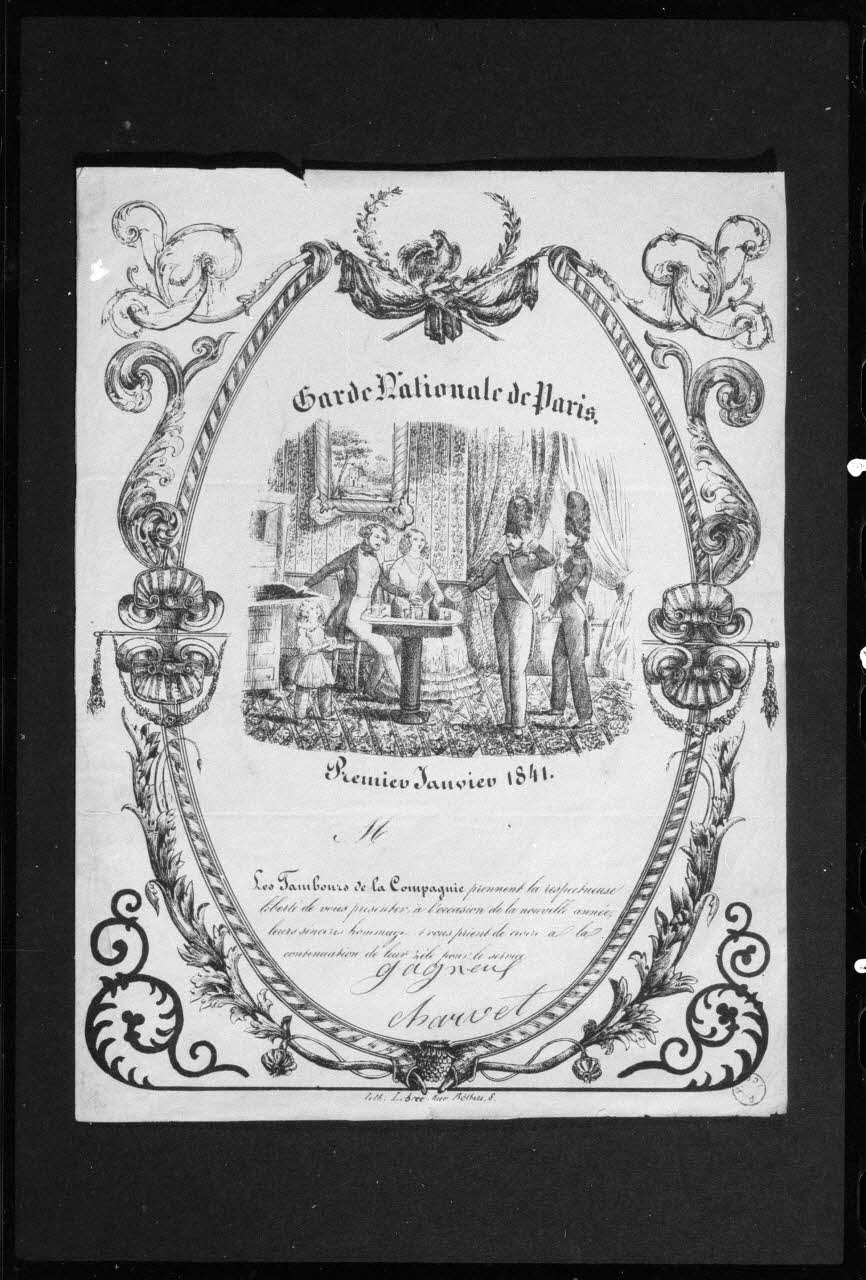 Garde Nationale de Paris.
Premier Janvier 1841.
M
Les Tambours de la Compagnie prennent la respectueuse
liberté de vous présenter, à l'occasion de la nouvelle année,
leurs sincères hommages et vous prient de croire à la
continuation de leur zèle pour le service
gagneul
charvet
Lith. Rue 8.